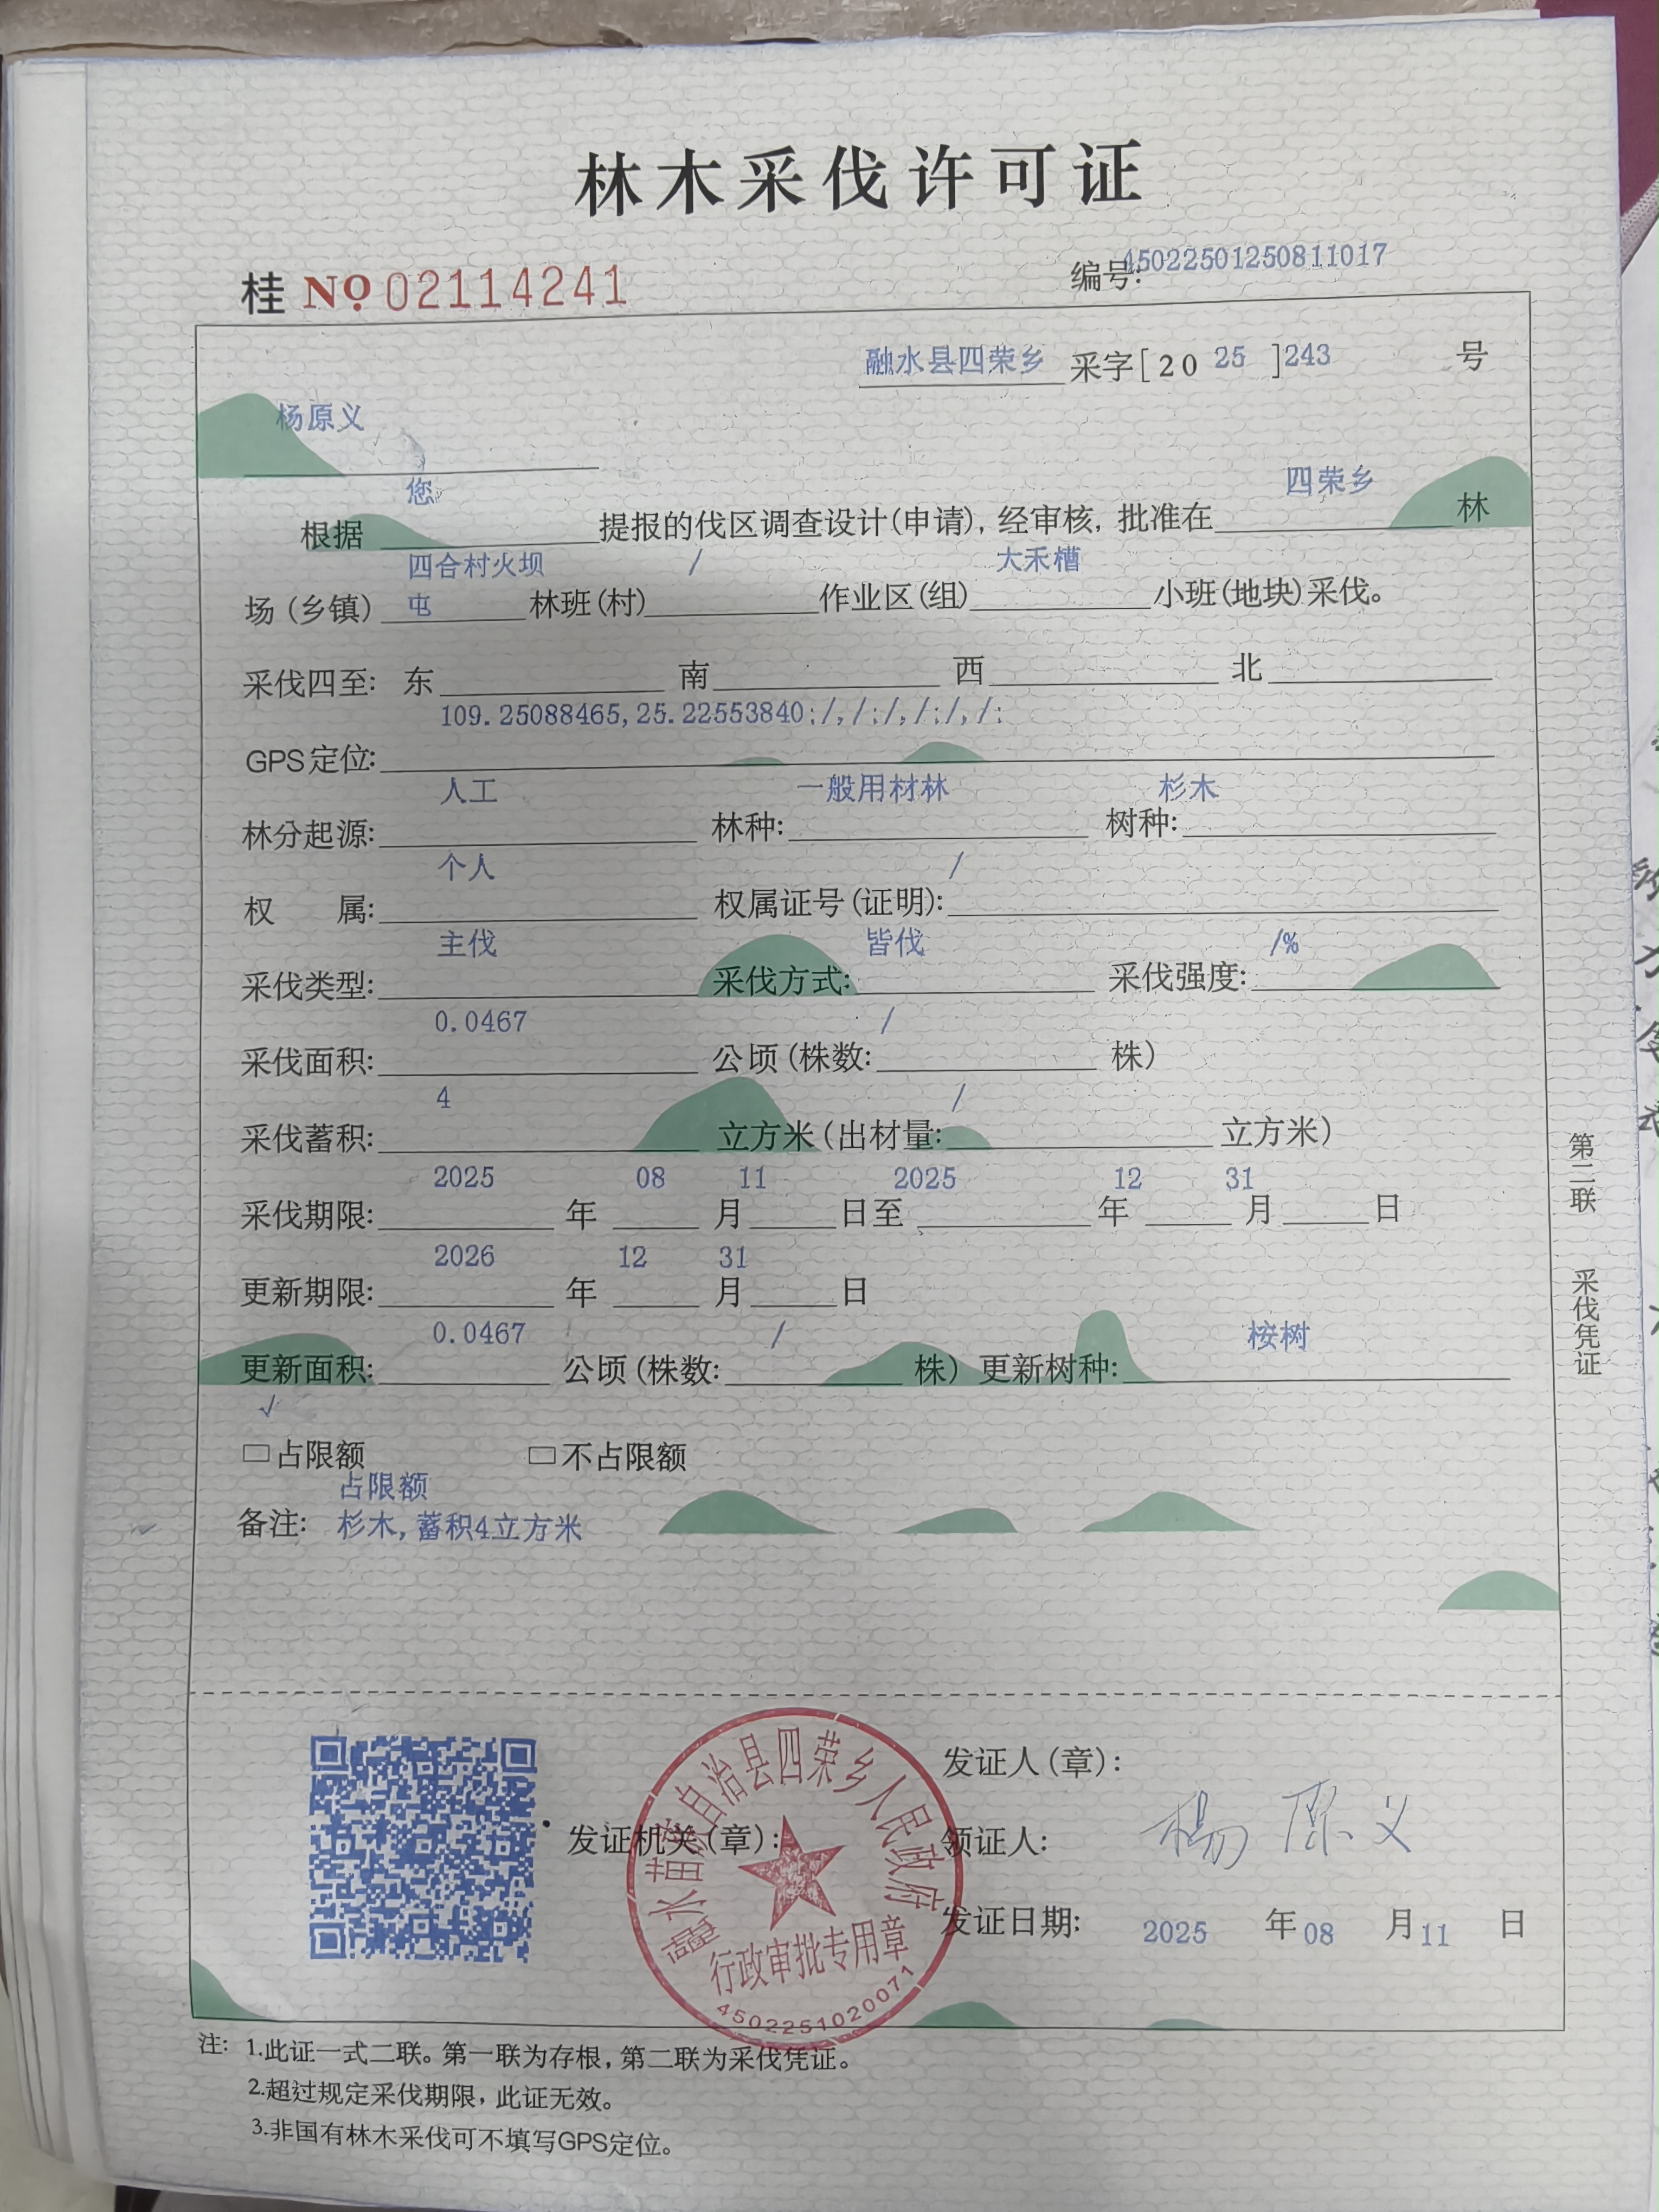 林木采伐许可证
桂 NO 02114241
编号:45022501250811017
融水县四荣乡 采字[2025]243 号
杨原义
根据 您 提报的伐区调查设计(申请), 经审核, 批准在 四荣乡 林
场(乡镇) 四合村火坝屯 林班(村) / 作业区(组) 大禾槽 小班(地块)采伐。
采伐四至: 东 南 西 北
GPS定位: 109.25088465,25.22553840;/,/;/,/;/,/;
林分起源: 人工 林种: 一般用材林 树种: 杉木
权 属: 个人 权属证号(证明): /
采伐类型: 主伐 采伐方式: 皆伐 采伐强度: /%
采伐面积: 0.0467 公顷(株数: / 株)
采伐蓄积: 4 立方米(出材量: / 立方米)
采伐期限: 2025 年 08 月 11 日至 2025 年 12 月 31 日
更新期限: 2026 年 12 月 31 日
更新面积: 0.0467 公顷(株数: / 株) 更新树种: 桉树
√
□占限额 □不占限额
占限额
备注: 杉木,蓄积4立方米
第二联 采伐凭证
发证人(章):
发证机关(章):
领证人: 楊原义
发证日期: 2025 年 08 月 11 日
融水苗族自治县四荣乡人民政府
行政审批专用章
4502251020071
注: 1.此证一式二联。第一联为存根,第二联为采伐凭证。
2.超过规定采伐期限,此证无效。
3.非国有林木采伐可不填写GPS定位。